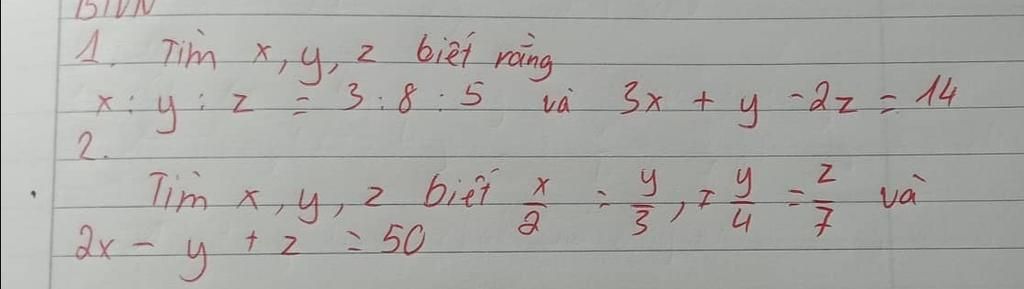 BTVN
1. Tìm x, y, z biết rằng
x : y : z = 3 : 8 : 5 và 3x + y - 2z = 14
2.
Tìm x, y, z biết x/2 = y/3, y/4 = z/7 và
2x - y + z = 50